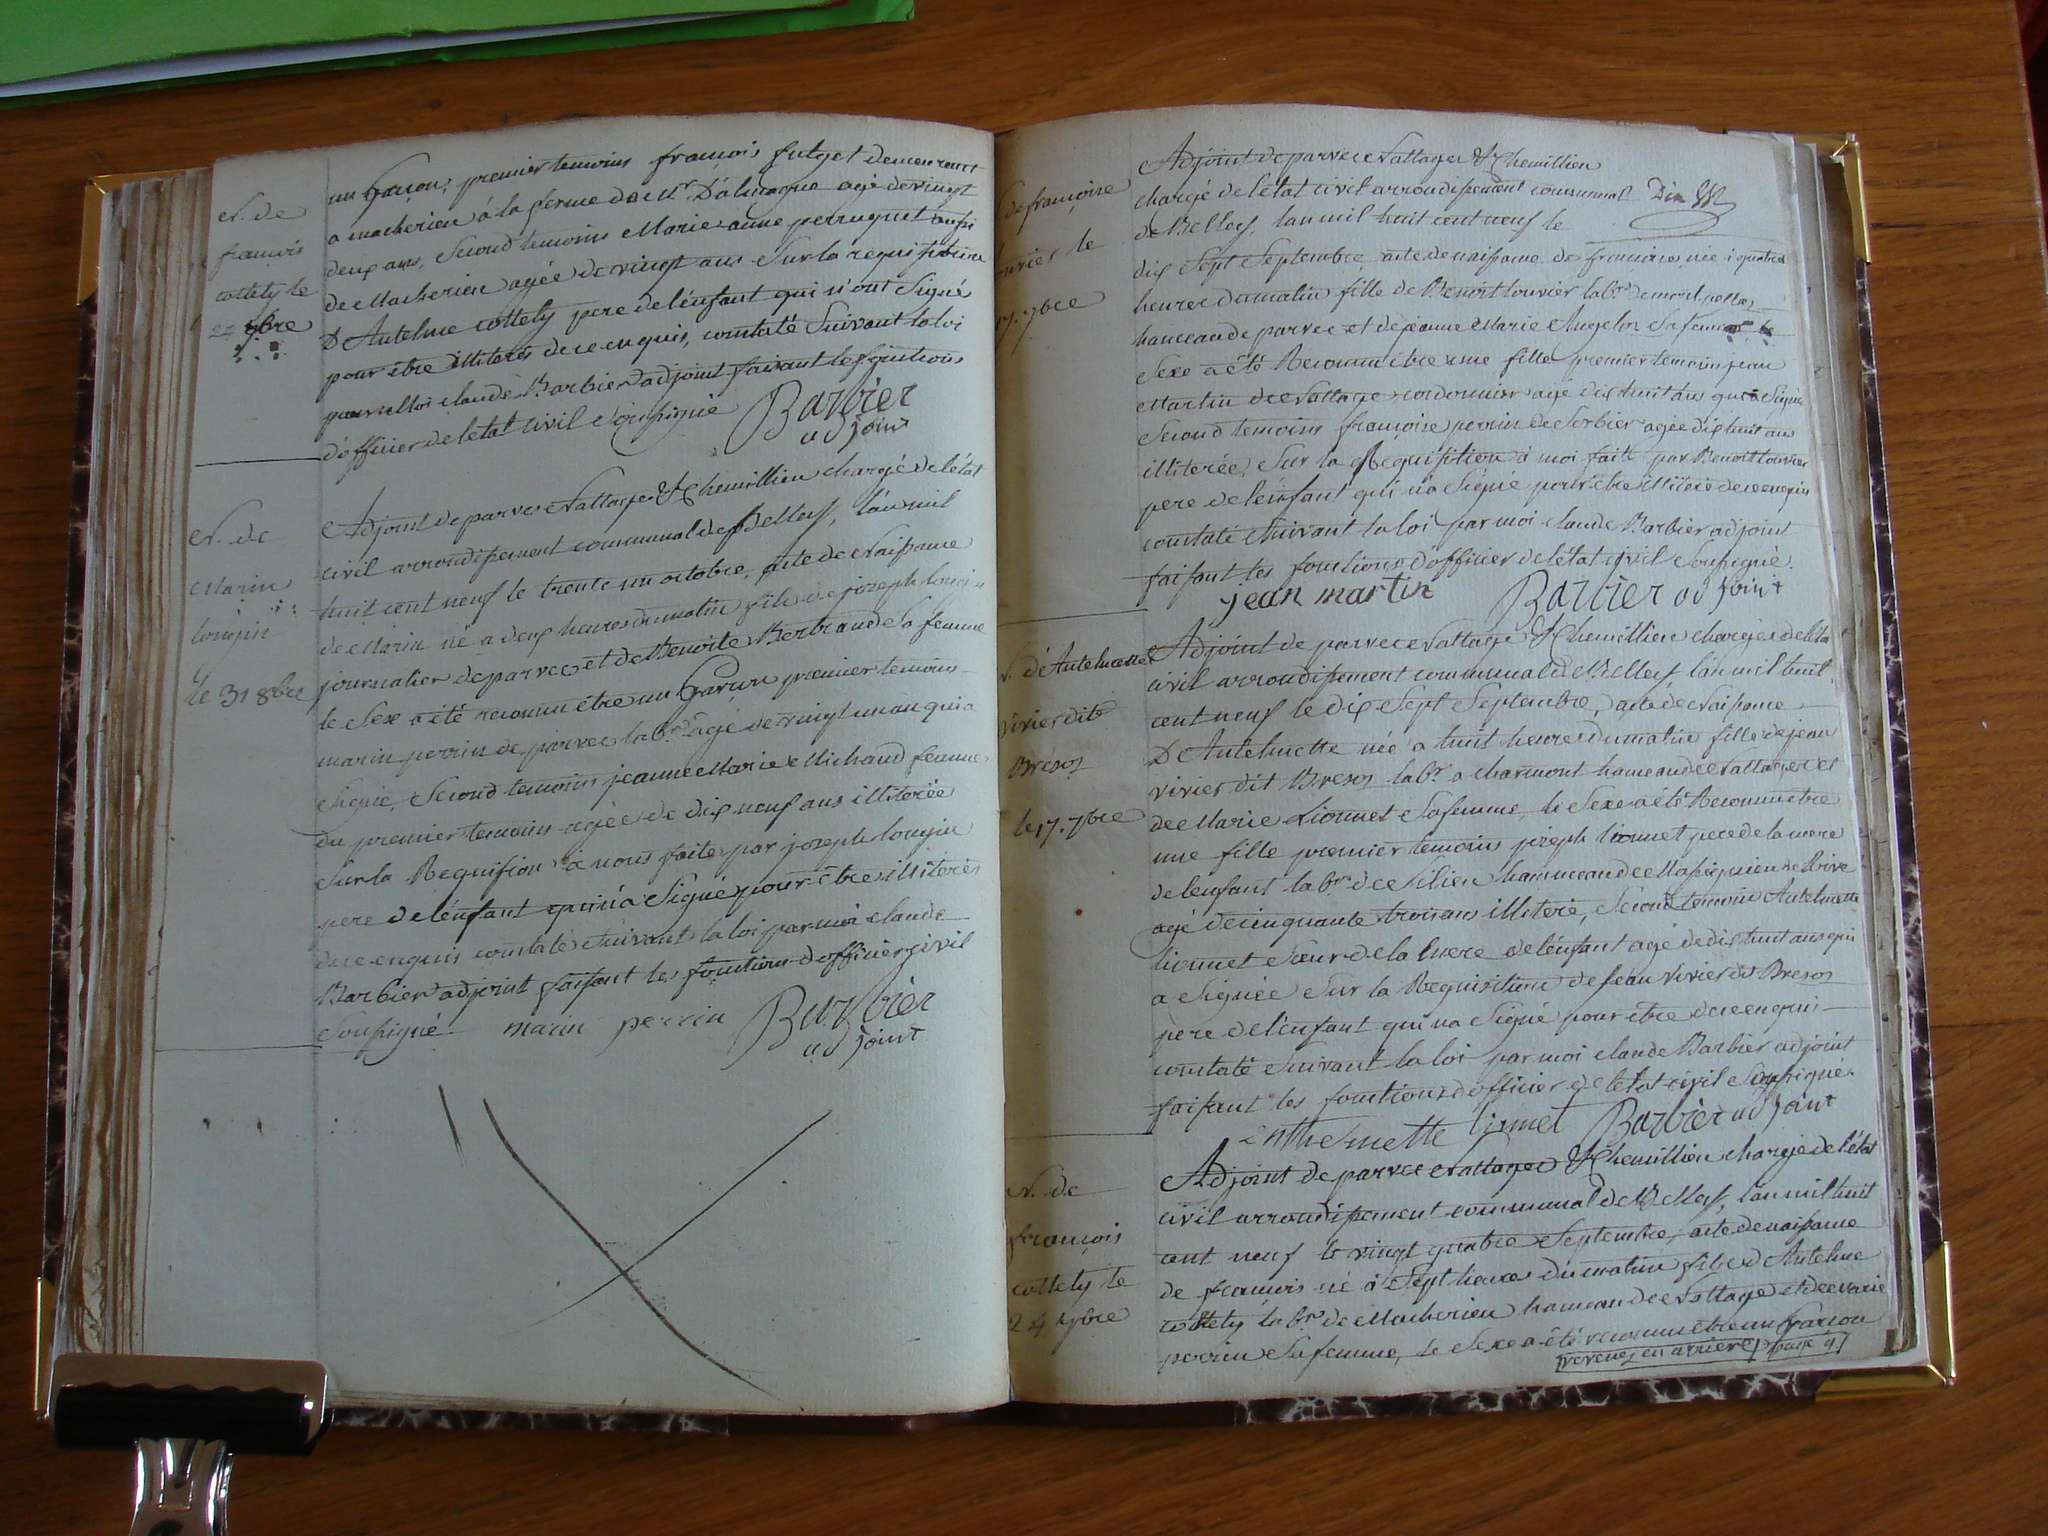 N. de
françois
cottety le
24 7bre
un Garçon, premier temoins francois futget demeurant
a macherien á la ferme de Mr. D'alucogne agé de vingt
deux ans, Second temoins Marie anne perruguet aussi
de Macherien agée de vingt ans Sur la requisition
D'Antelme cottety pere de l'enfant qui n'ont Signé
pour être illiterés de ce enquis, constaté Suivant la loi
par Moi claude Barbier adjoint faisant les fonctions
d'officier de l'etat civil Soussigné Barbier
adjoint
N. de
Marin
lonjin
le 31 8bre
Adjoint de parves Nattages & Chemillien chargé de l'état
civil arrondissement communal de Belley, l'an mil
huit cent neuf le trente un octobre, acte de Naissance
de Marin né a deux heures du matin fils de joseph lonjin
journalier de parves et de Benoite Berbrand Sa femme
le Sexe a été reconnu être un Garçon premier temoins
marin perrin de parves lab.r âgé de vingt un an qui a
Signé, Second temoins jeanne Marie Michaud femme
du premier temoins agée de dix neuf ans illiterée
Sur la Requision a nous faite par joseph lonjin
pere de l'enfant qui n'a Signé pour être illiteré
de ce enquis constaté Suivant la loi par moi claude
Barbier adjoint faisant les fonctions d'officier civil
Soussigné marin perrin Barbier
adjoint
N. de françoise
louvier le
17. 7bre
Adjoint de parves Nattages & Chemillien
chargé de l'état civil arrondissement communal
de Belley, l'an mil huit cent neuf le
dix Sept Septembre acte de naissance de francoise née à quatre
heures du matin fille de Benoit louvier lab.r de mont
hameau de parves et de jeanne Marie Angelon Sa femme le
Sexe a été Reconnu être une fille premier temoin jean
Martin de Nattage cordonnier agé dix huit ans qui a Signé
Second temoins françoise perrin de Sorbier agée dix huit ans
illiterée, Sur la Requisition à moi faite par Benoit louvier
pere de l'enfant qui n'a Signé pour être illiteré de ce enquis
constaté Suivant la loi par moi claude Barbier adjoint
faisant les fonctions d'officier de l'état civil Soussigné.
jean martin Barbier adjoint
N. de Antelmette
vivier dit
Bresos
le 17. 7bre
Adjoint de parves Nattage & Chemillien chargé de l'état
civil arrondissement communal de Belley l'an mil huit
cent neuf le dix Sept Septembre, acte de Naissance
D'Antelmette née a huit heures du matin fille de jean
vivier dit Bresos lab.r a charmont hameau de Nattages et
de Marie Lionnet Sa femme, le Sexe a été Reconnu être
une fille premier temoins joseph lionnet pere de la mere
de l'enfant lab.r de Silien hammeau de Massignieu de Rive
agé de cinquante trois ans illiteré, Second temoins Antelmette
lionnet Sœur de la mere de l'enfant agé de dix huit ans qui
a Signée Sur la Requisition de jean vivier dit Bresos
pere de l'enfant qui n'a Signé pour être de ce enquis
constaté Suivant la loi par moi claude Barbier adjoint
faisant les fonctions d'officier de l'état civil Soussigné.
Anthelmette lionet Barbier adjoint
N. de
françois
cottety le
24 7bre
Adjoint de parves Nattages & Chemillien chargé de l'état
civil arrondissement communal de Belley, l'an mil huit
cent neuf le vingt quatre Septembre, acte de naissance
de francois né à Sept heures du matin fils D'Antelme
cottety lab.r de Macherien hameau de Nattage et de Marie
perrin Sa femme, le Sexe a été reconnu être un Garçon
revenez en arriere page 9